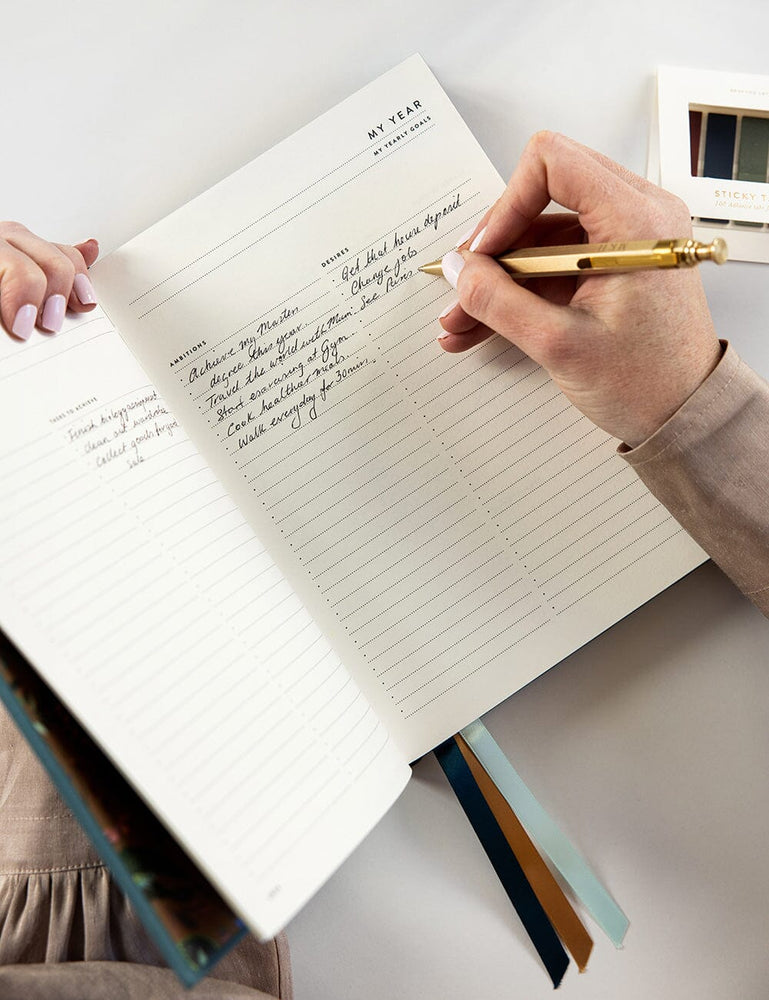 MY YEAR
MY YEARLY GOALS
AMBITIONS
Achieve my Masters
degree this year.
Travel the world with Mum.
Start exersising at Gym
Cook healthier meals.
Walk everyday for 30mins.
DESIRES
Get that house deposit
Change jobs
See Paris
THINGS TO ACHIEVE
Finish biology assignment
clean out wardrobe
Collect goods for
Sale
STICKY TA